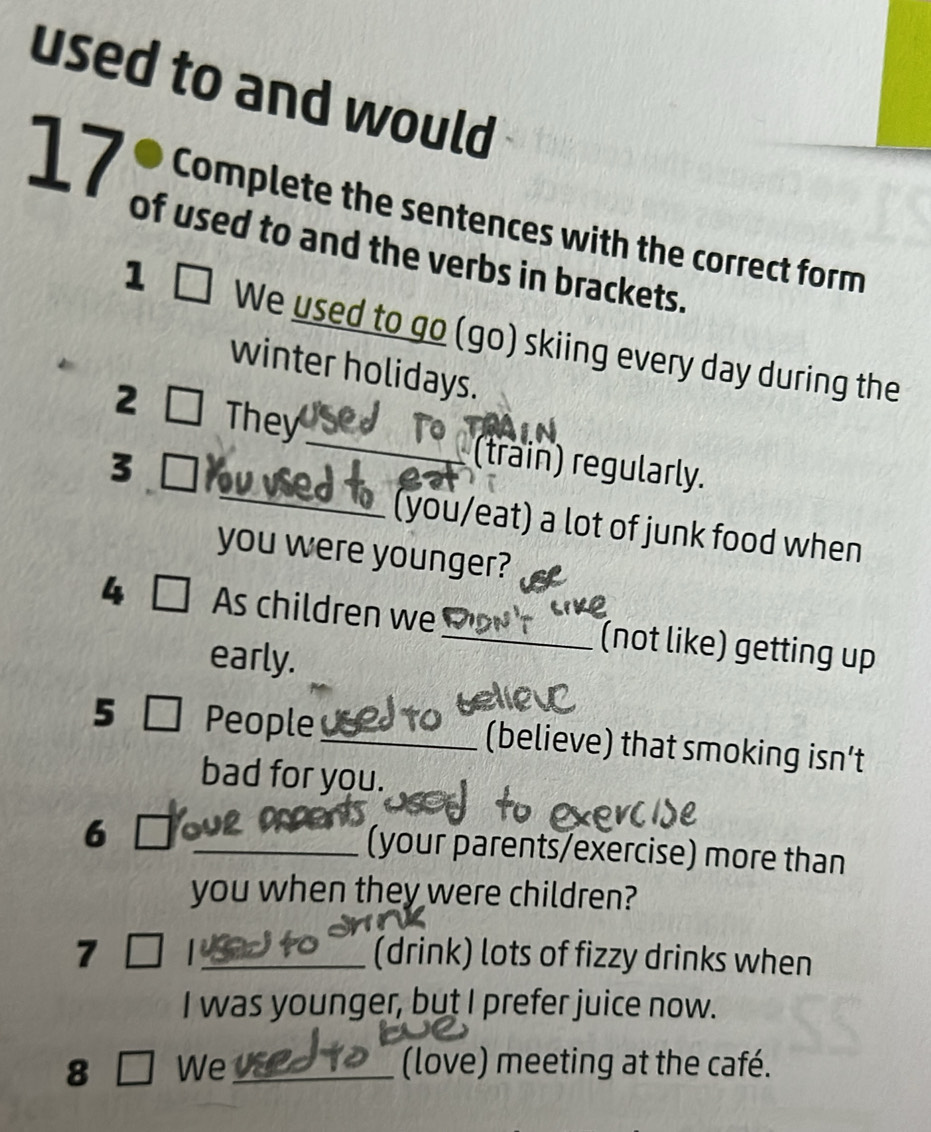 used to and would
17 Complete the sentences with the correct form
of used to and the verbs in brackets.
1 We used to go (go) skiing every day during the
winter holidays.
2 They used TO TRAIN (train) regularly.
3 You used to eat (you/eat) a lot of junk food when
you were younger?
4 As children we DIDN'T use LIKE (not like) getting up
early.
5 People used TO believe (believe) that smoking isn't
bad for you.
6 Your parents used to exercise (your parents/exercise) more than
you when they were children?
7 I used to drink (drink) lots of fizzy drinks when
I was younger, but I prefer juice now.
8 We used to (love) meeting at the café.